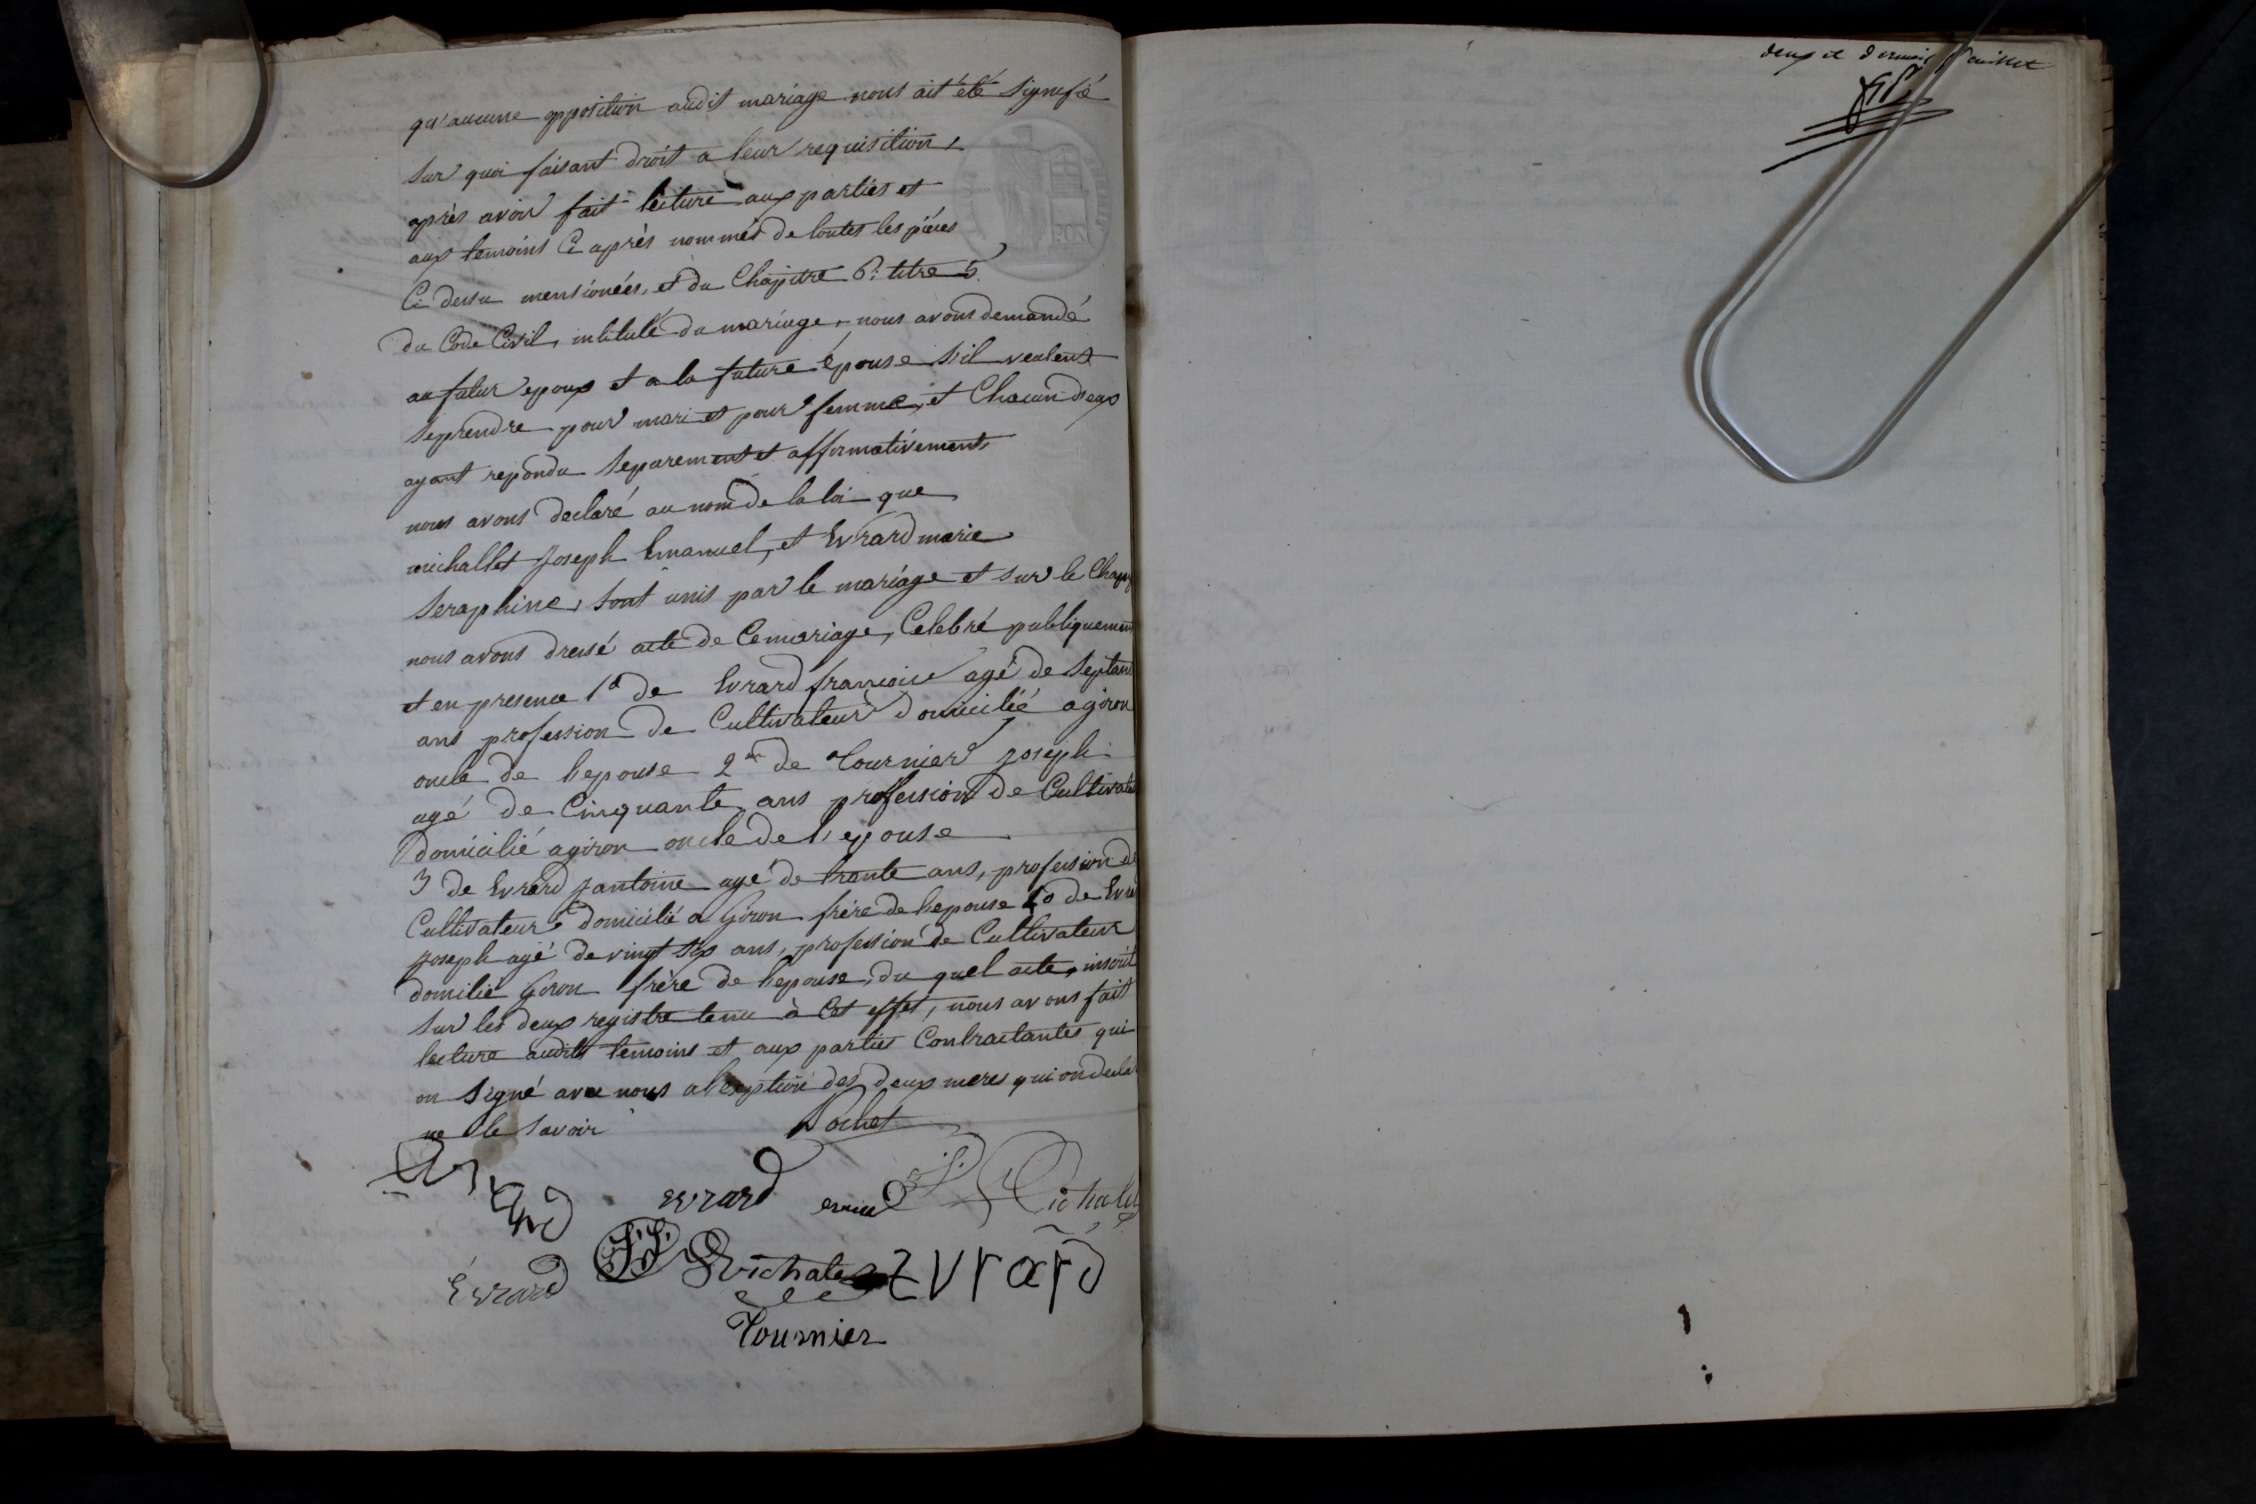 qu'aucune opposition audit mariage nous ait été signifié
sur quoi faisant droit a leur requisition,
après avoir fait lecture aux parties et
aux temoins Ci après nommés de toutes les pièces
Ci dessu mensionées, et du Chapitre 6: titre 5.
du Code Civil, intitulé du mariage, nous avons demandé
au futur epoux et a la future épouse s'il veulent
se prendre pour mari et pour femme, et Chacun d'eux
ayant repondu separement et affirmativement
nous avons declaré au nom de la loi que
michallet joseph Emanuel, et Evrard marie
seraphine, sont unis par le mariage et sur le Champ
nous avons dressé acte de Ce mariage, Celebré publiquement
et en presence 1° de Evrard francois agé de septant
ans profession de Cultivateur domicilié agiron
oncle de lepouse 2° de Tournier joseph
agé de Cinquante ans profession de Cultivate
domicilié agiron oncle de l'epouse
3 de Evrard j antoine agé de trante ans, profession de
Cultivateur domicilié a Giron frère de lepouse 4° de Evra
joseph agé de vingt six ans, profession de Cultivateur
domilié Giron frère de lepouse, du quel acte, inscrit
sur les deux registre tenu à Cet effet, nous avons fait
lecture audits temoins et aux parties Contractantes qui
on signé avec nous a l'exption des deux meres qui on decla
ne le savoir
Pochet
Evrard evrard J. Michalet
Evrard J. J. Michalet Evrard
Tournier
deux et dernier feuillet